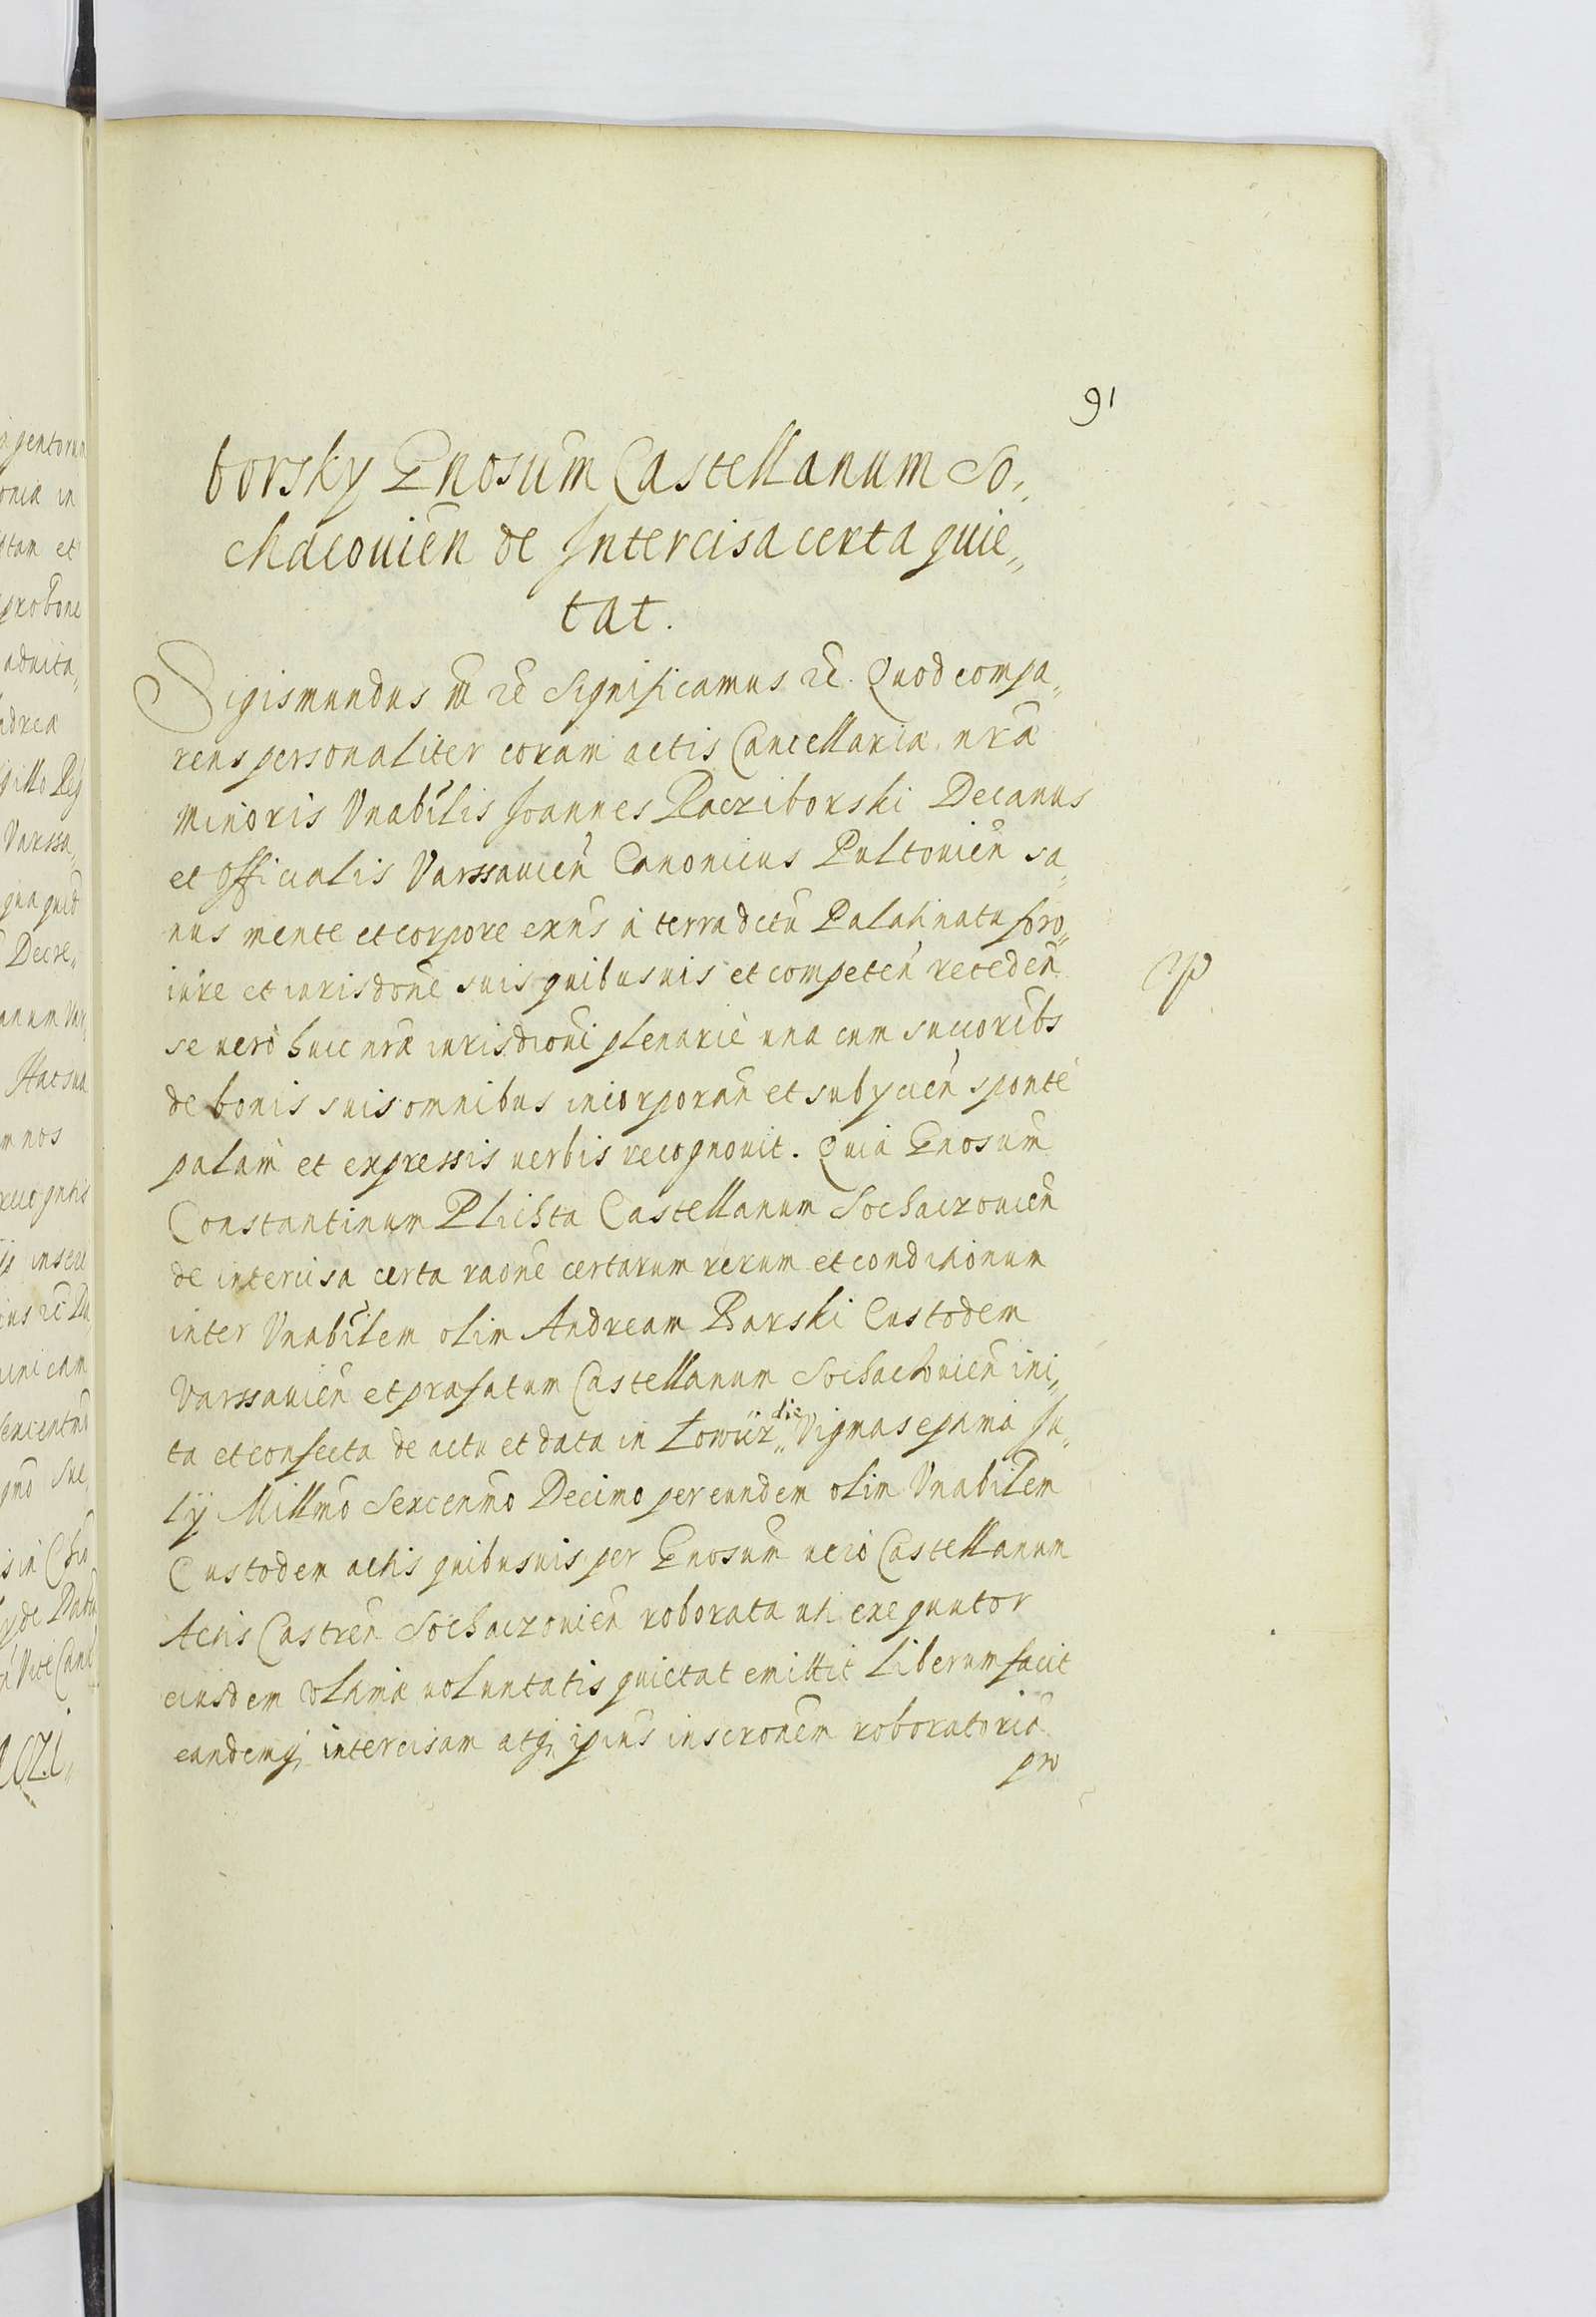 91
borsky Gnosum Castellanum So„
chacouien de Intercisa certa quie„
tat.
Sigismundus III etc Significamus etc. Quod compa„
rens personaliter coram actis Cancellariæ nrã
minoris Vnabilis Joannes Racziborski Decanus
et Officialis Varssauien Canonicus Pultouien sa„
nus mente et corpore exns à terra dctu Palatinatu foro„
iure et iurisdone suis quibusuis et competen receden
se uero huic nræ iurisdioni plenariè una cum succoribs
de bonis suis omnibus incorporan et subycien sponte
palam et expressis uerbis recognouit. Quia Gnosum
Constantinum Plichta Castellanum Sochaczouien
de intercisa certa raone certarum rerum et conditionum
inter Vnabilem olim Andream Barski Custodem
Varssauien et præfatum Castellanum Sochachouien ini„
ta et confecta de actu et data in Łowicz„ die Vigmasepama Ju„
lÿ Millmo Sexcenmo Decimo per eundem olim Vnabilem
Custodem actis quibusuis per Gnosum uero Castellanum
Actis Castren Sochaczouien roborata uti exequutor
eiusdem Vltimæ uoluntatis quietat emittit liberum facit
eandemq, intercisam atq, ipius inscronem roboratoria
pro